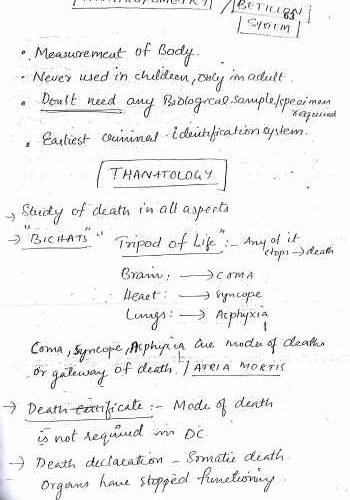 ANTHROPOMETRY / BETILLON
63
SYSTEM
• Measurement of Body.
• Never used in children, only in adult.
• Don't need any Biological sample/specimen
required
• Earliest criminal identification system.
THANATOLOGY
→ Study of death in all aspects
→ "BICHATS" "Tripod of Life" :- Any of it
stops → death
Brain: → COMA
Heart: → Syncope
Lungs: → Asphyxia
Coma, Syncope, Asphyxia are modes of deaths
or gateway of death. / ATRIA MORTIS
→ Death certificate :- Mode of death
is not required in DC
→ Death declaration - Somatic death.
Organs have stopped functioning.